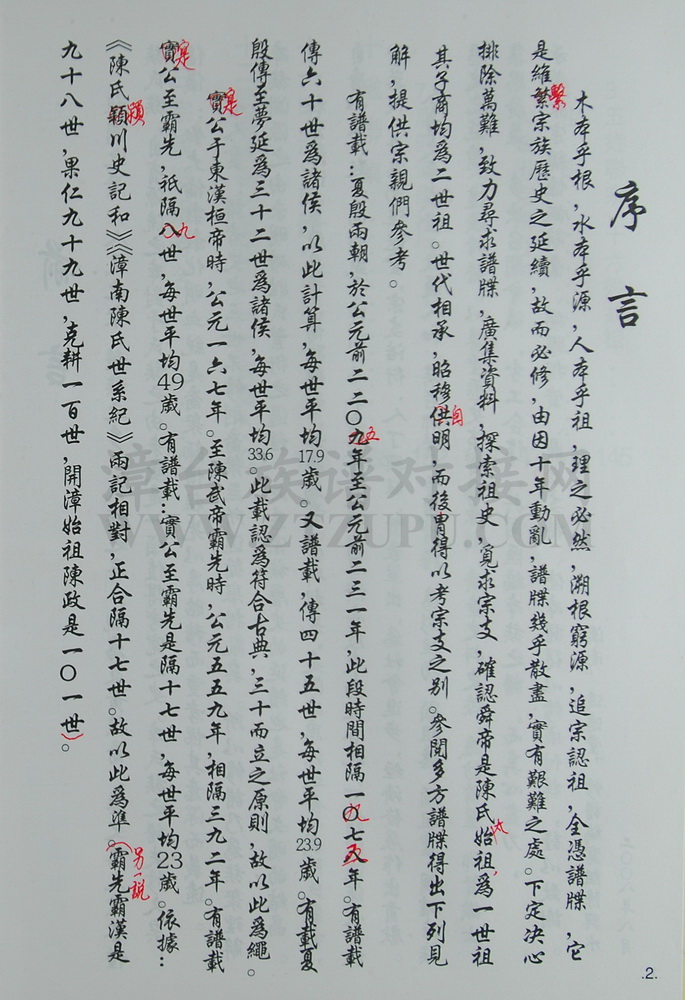 序言
木本乎根,水本乎源,人本乎祖,理之必然,溯根窮源,追宗認祖,全憑譜牒,它
是維繁宗族歷史之延續,故而必修,由因十年動亂,譜牒幾乎散盡,實有艱難之處。下定決心
繫
排除萬難,致力尋求譜牒,廣集資料,探索祖史,覓求宗支,確認舜帝是陳氏始祖,爲一世祖
太
其子商均爲二世祖。世代相承,昭穆供明,而後胄得以考宗支之別。參閱多方譜牒得出下列見
自
解,提供宗親們參考。
有譜載:夏殷兩朝,於公元前二二〇九年至公元前二三一年,此段時間相隔一〇七八年。有譜載
五
九
五
傳六十世爲諸侯,以此計算,每世平均17.9歲。又譜載,傳四十五世,每世平均23.9歲。有載夏
殷傳至夢延爲三十二世爲諸侯,每世平均33.6。此載認爲符合古典,三十而立之原則,故以此爲繩。
寶公于東漢桓帝時,公元一六七年。至陳武帝霸先時,公元五五九年,相隔三九二年。有譜載
寔
寶公至霸先,祇隔八世,每世平均49歲。有譜載:實公至霸先是隔十七世,每世平均23歲。依據:
寔
九
《陳氏穎川史記和》《漳南陳氏世系紀》兩記相對,正合隔十七世。故以此爲準。霸先霸漢是
潁
另一說
九十八世,果仁九十九世,克耕一百世,開漳始祖陳政是一〇一世。
漳台族谱对接网
WWW.ZTZUPU.COM
.2.